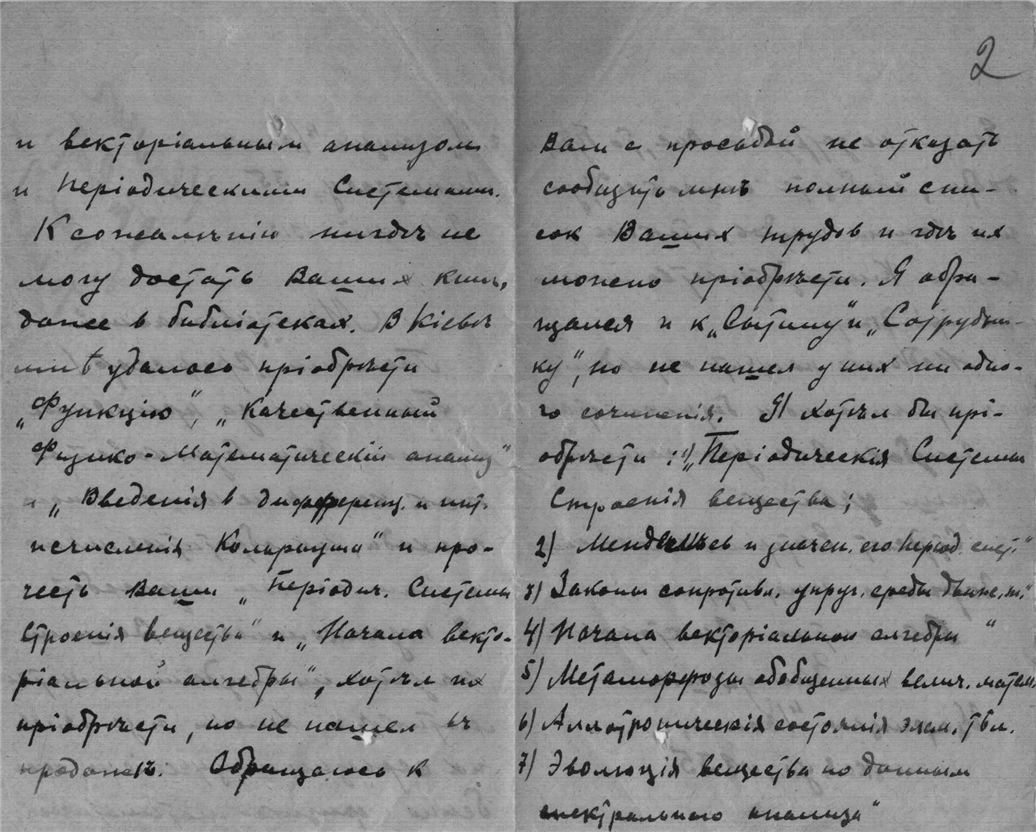 и векторіальным анализом
и Періодическими Системами.
К сожалѣнію нигдѣ не
могу достать Ваших книг,
даже в библіотеках. В Кіевѣ
мнѣ удалось пріобрѣсти
„Функцію“, „Качественный
Физико-Математическій анализ“
и „Введенія в дифференц. и инт.
исчисленія Кольрауша“ и про-
честь Ваши „Періодич. Системы
Строенія вещества“ и „Начала векто-
ріальной алгебры“, хотѣл их
пріобрѣсти, но не нашел въ
продажѣ. Обращаюсь к
2
Вам с просьбой не отказать
сообщить мнѣ полный спи-
сок Ваших трудов и гдѣ их
можно пріобрѣсти. Я обра-
щался и к „Сытину“ и „Сотрудни-
ку“, но не нашел у них ни одно-
го сочиненія. Я хотѣл бы прі-
обрѣсти: 1) „Періодическія Системы
Строенія вещества;
2) Менделѣев и значен. его період. сист.“
3) Законы сопротивл. упруг. среды движ. т.“
4) Начала векторіальной алгебры“
5) Метаморфозы обобщенных велич. матем.
6) Аллотропическія состоянія элем. тѣл.
7) Эволюція вещества по данным
спектрального анализа“